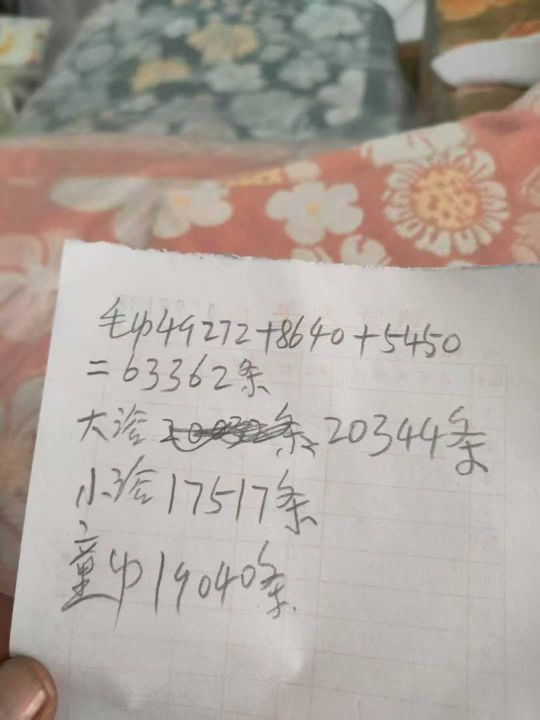 毛巾49272+8640+5450
=63362条
大浴 20344条
小浴17517条
童巾19040条